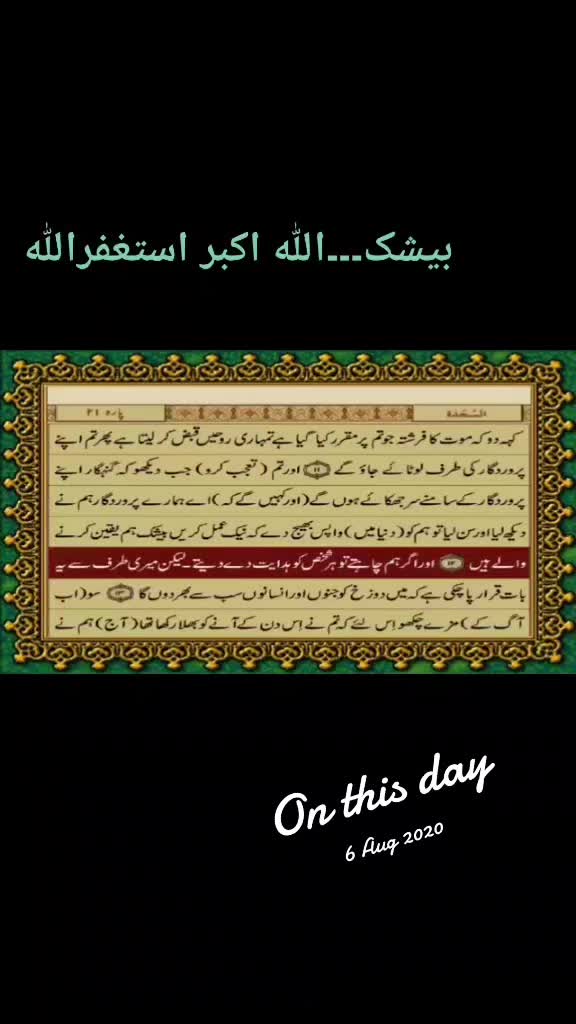 بیشک۔۔۔اللہ اکبر استغفراللہ
السّجدۃ
پارہ ۲۱
کہہ دو کہ موت کا فرشتہ جو تم پر مقرر کیا گیا ہے تمہاری روحیں قبض کر لیتا ہے پھر تم اپنے
پروردگار کی طرف لوٹائے جاؤ گے ۱۱ اور تم (تعجب کرو) جب دیکھو کہ گنہگار اپنے
پروردگار کے سامنے سر جھکائے ہوں گے (اور کہیں گے کہ) اے ہمارے پروردگار ہم نے
دیکھ لیا اور سن لیا تو ہم کو (دنیا میں) واپس بھیج دے کہ نیک عمل کریں بیشک ہم یقین کرنے
والے ہیں ۱۲ اور اگر ہم چاہتے تو ہر شخص کو ہدایت دے دیتے۔ لیکن میری طرف سے یہ
بات قرار پا چکی ہے کہ میں دوزخ کو جنوں اور انسانوں سب سے بھر دوں گا ۱۳ سو (اب
آگ کے) مزے چکھو اس لئے کہ تم نے اس دن کے آنے کو بھلا رکھا تھا (آج) ہم نے
On this day
6 Aug 2020